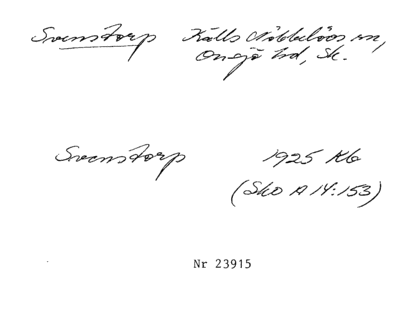 Svenstorp Källs Nöbbelövs sn,
Onsjö hd, Sk.
Svenstorp 1925 Kb
(Sko A 14:153)
Nr 23915